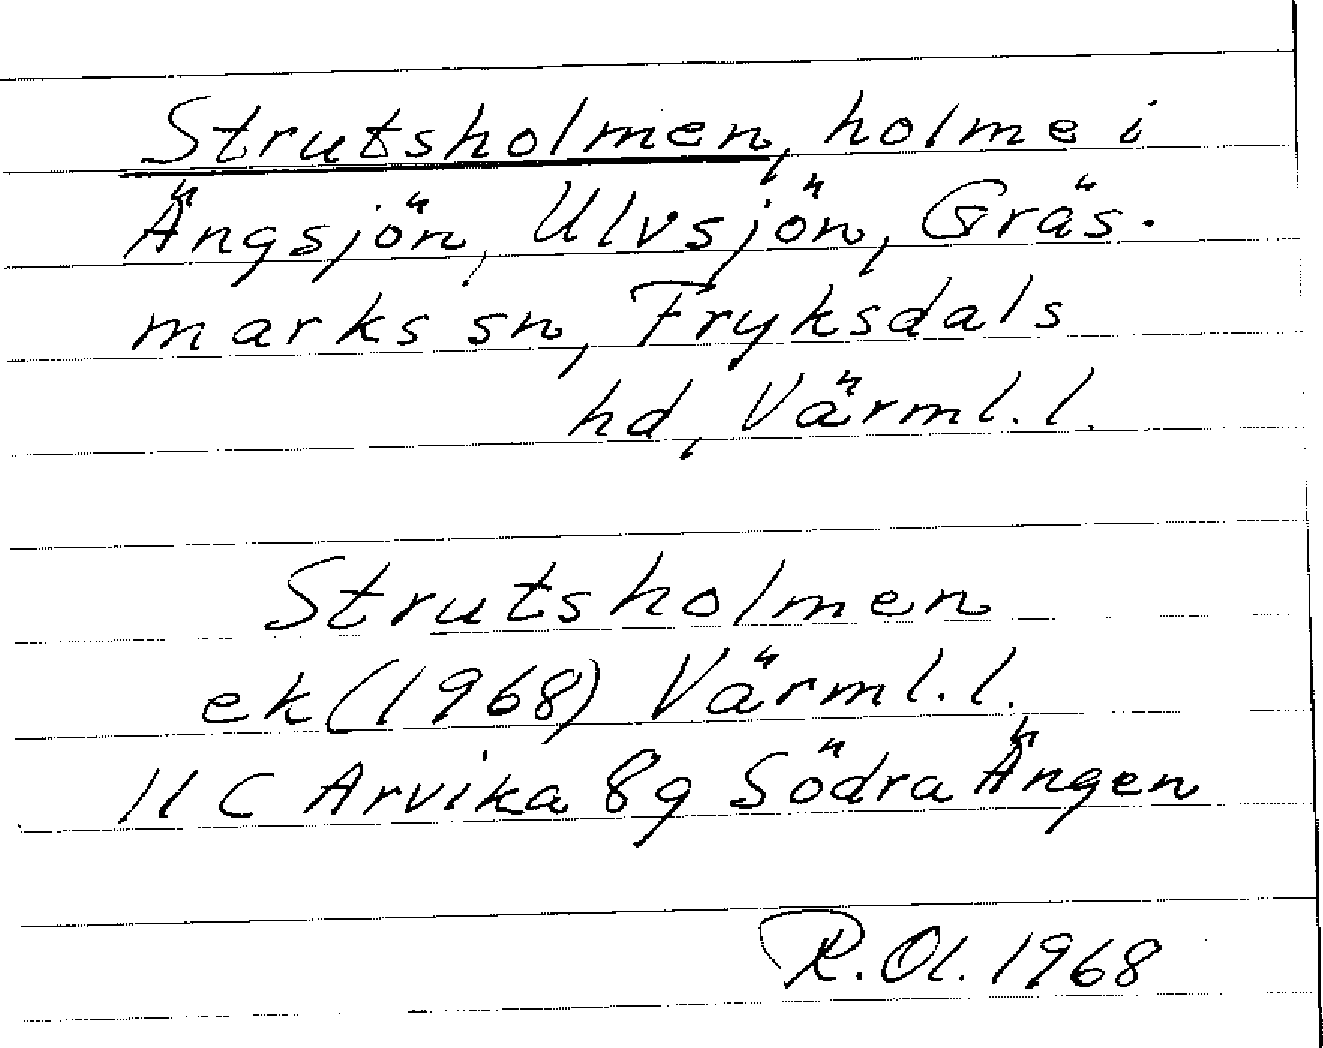 Strutsholmen, holme i
Ängsjön, Ulvsjön, Gräs-
marks sn, Fryksdals
hd, Värml. l.
Strutsholmen
ek (1968) Värml. l.
11 C Arvika 8g Södra Ängen
R. Ol. 1968